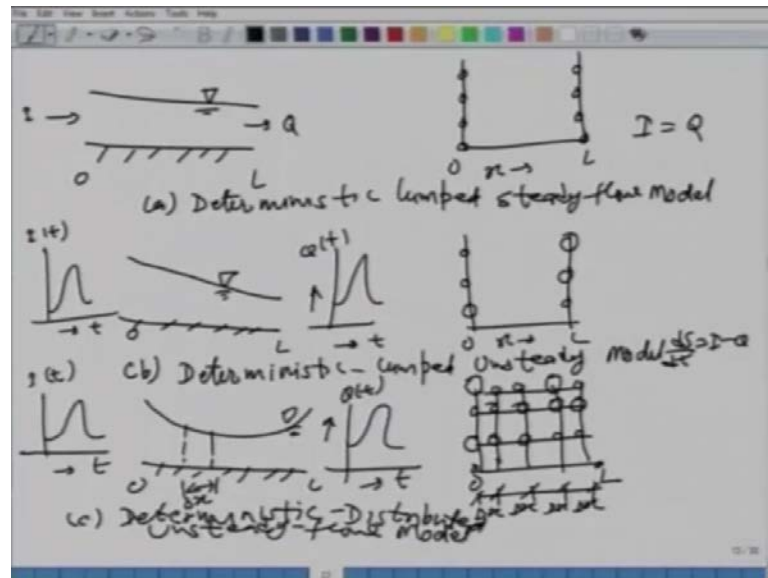 File Edit View Insert Actions Tools Help
I → → Q I = Q
O L O x → L
(a) Deterministic lumped steady-flow Model
I(t) Q(t)
→ t O L → t O x → L
(b) Deterministic-lumped Unsteady model ds/dt = I-Q
I(t) Q(t)
→ t O δx L → t O L
δx δx δx δx
(c) Deterministic-Distributed
Unsteady-flow Model